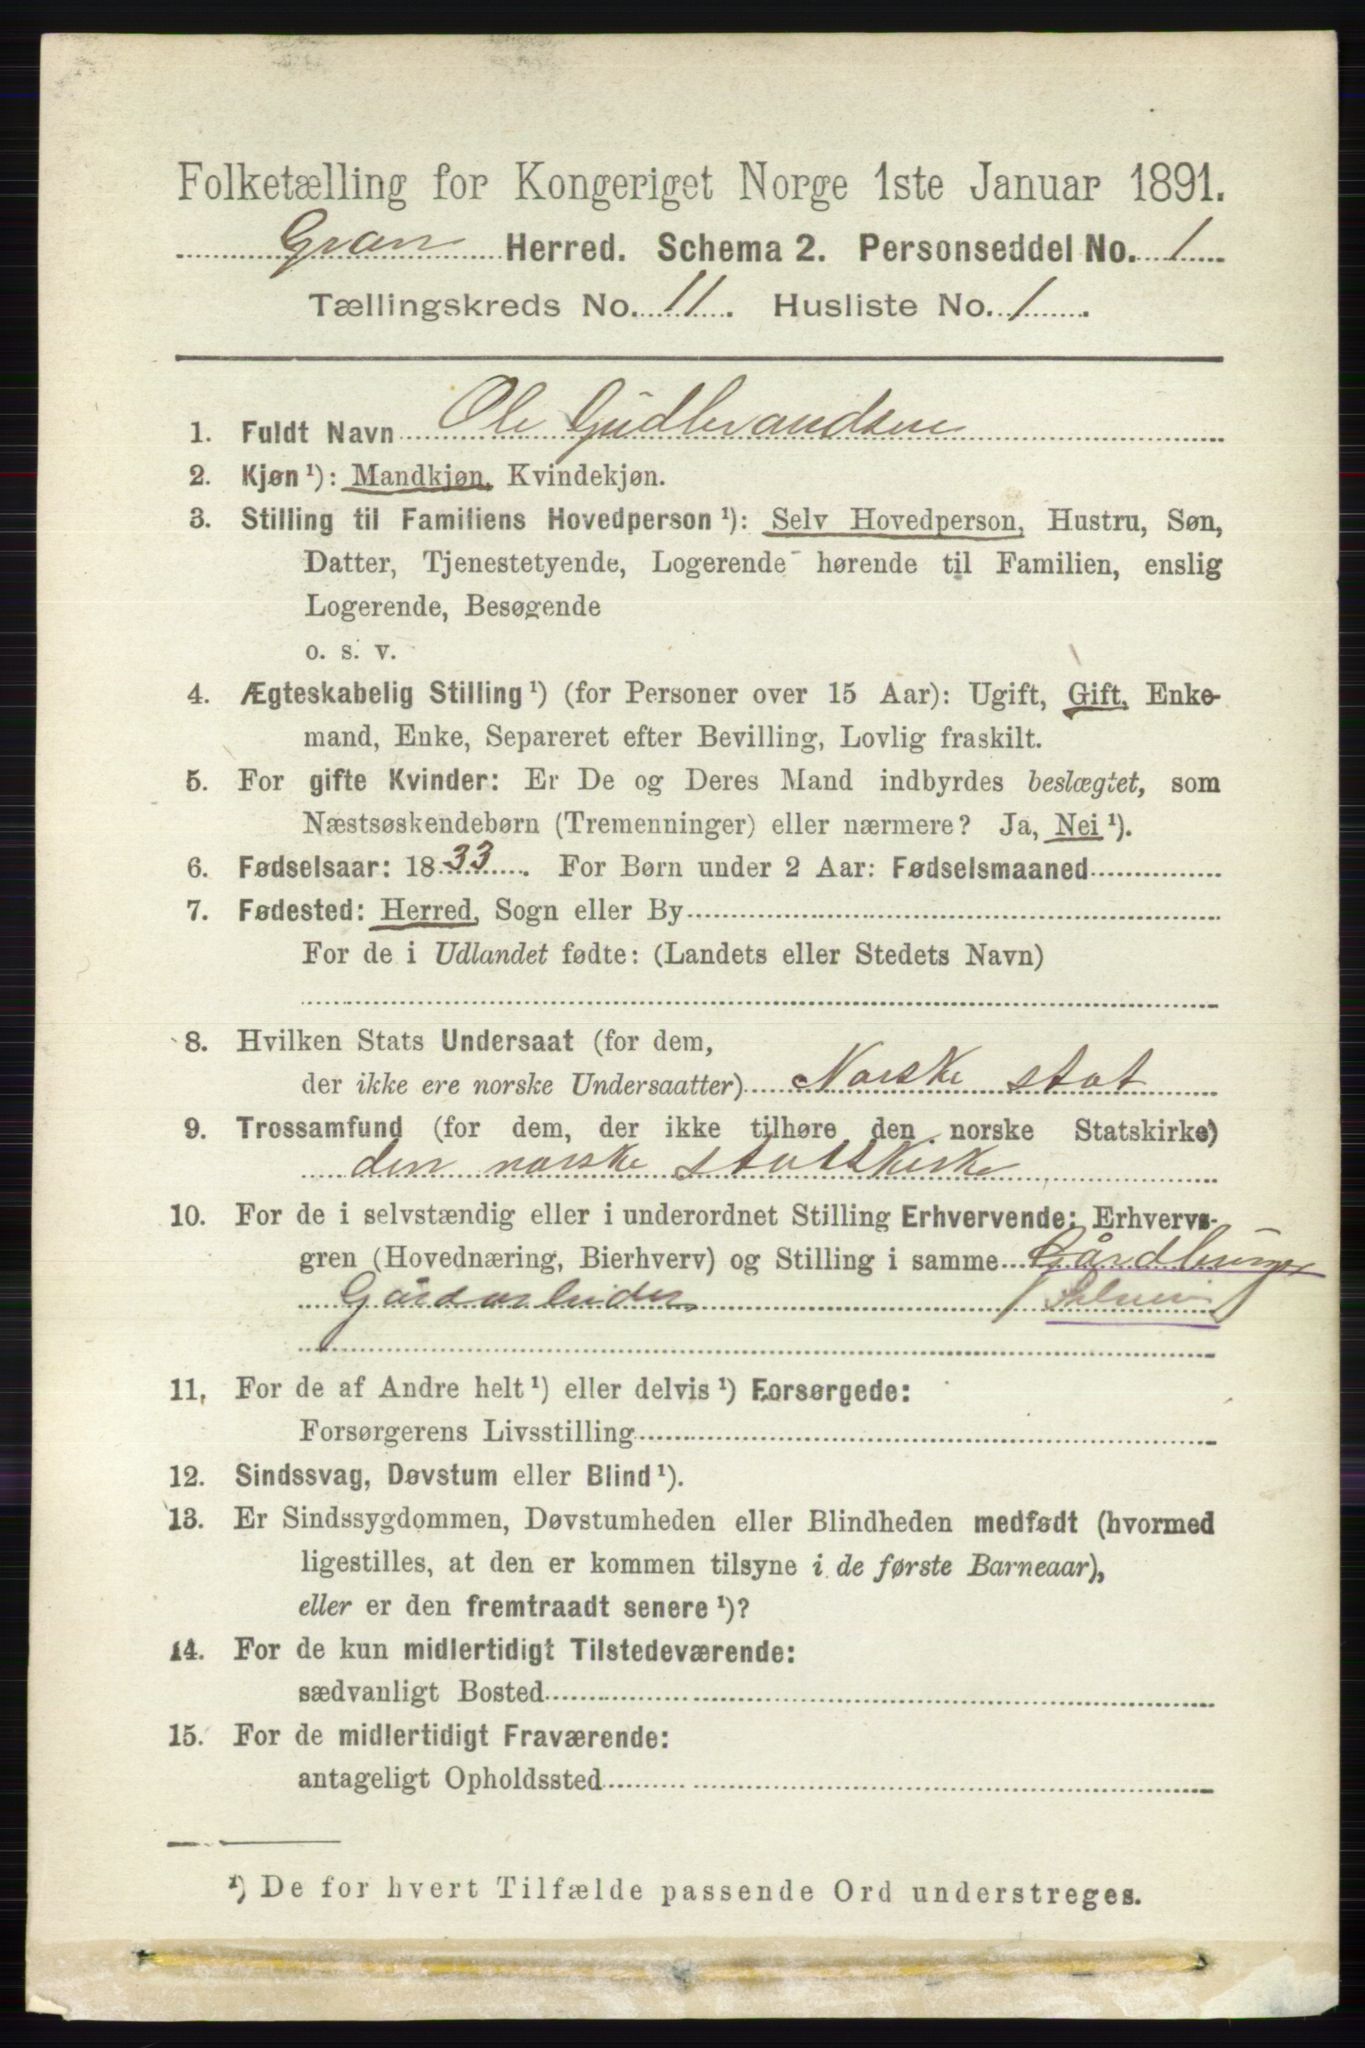 Folketælling for Kongeriget Norge 1ste Januar 1891.
Gran Herred. Schema 2. Personseddel No. 1
Tællingskreds No. 11. Husliste No. 1.
1. Fuldt Navn Ole Gudbrandsen
2. Kjøn ¹): Mandkjøn, Kvindekjøn.
3. Stilling til Familiens Hovedperson ¹): Selv Hovedperson, Hustru, Søn,
Datter, Tjenestetyende, Logerende hørende til Familien, enslig
Logerende, Besøgende
o. s. v.
4. Ægteskabelig Stilling ¹) (for Personer over 15 Aar): Ugift, Gift, Enke-
mand, Enke, Separeret efter Bevilling, Lovlig fraskilt.
5. For gifte Kvinder: Er De og Deres Mand indbyrdes beslægtet, som
Næstsøskendebørn (Tremenninger) eller nærmere? Ja, Nei ¹).
6. Fødselsaar: 1833. For Børn under 2 Aar: Fødselsmaaned
7. Fødested: Herred, Sogn eller By
For de i Udlandet fødte: (Landets eller Stedets Navn)
8. Hvilken Stats Undersaat (for dem,
der ikke ere norske Undersaatter) Norske stat
9. Trossamfund (for dem, der ikke tilhøre den norske Statskirke)
den norske statskirke
10. For de i selvstændig eller i underordnet Stilling Erhvervende: Erhvervs-
gren (Hovednæring, Bierhverv) og Stilling i samme Gårdbruger
Gårdarbeider Selveier
11. For de af Andre helt ¹) eller delvis ¹) Forsørgede:
Forsørgerens Livsstilling
12. Sindssvag, Døvstum eller Blind ¹).
13. Er Sindssygdommen, Døvstumheden eller Blindheden medfødt (hvormed
ligestilles, at den er kommen tilsyne i de første Barneaar),
eller er den fremtraadt senere ¹)?
14. For de kun midlertidigt Tilstedeværende:
sædvanligt Bosted
15. For de midlertidigt Fraværende:
antageligt Opholdssted
¹) De for hvert Tilfælde passende Ord understreges.